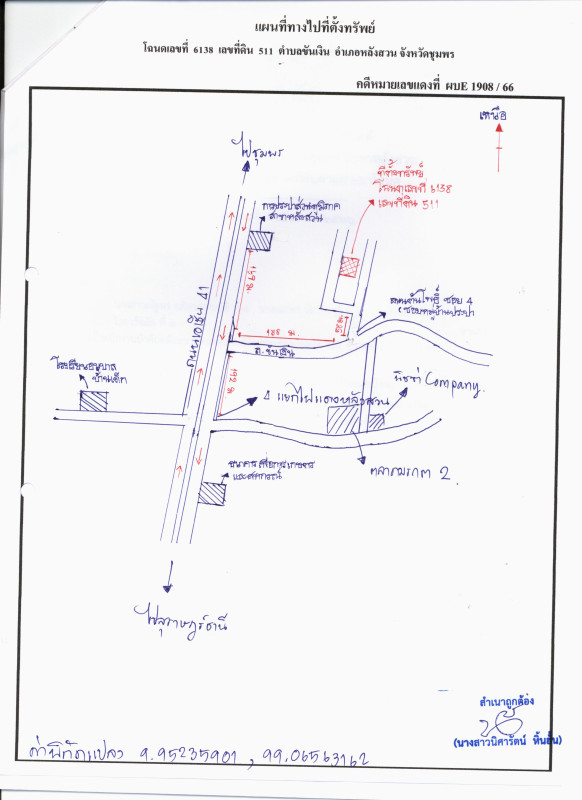 แผนที่ทางไปที่ตั้งทรัพย์
โฉนดเลขที่ 6138 เลขที่ดิน 511 ตำบลขันเงิน อำเภอหลังสวน จังหวัดชุมพร
คดีหมายเลขแดงที่ ผบE 1908 / 66
เหนือ
ไปชุมพร
ที่ตั้งทรัพย์
โฉนดเลขที่ 6138
เลขที่ดิน 511
การประปาส่วนภูมิภาค
สาขาหลังสวน
159 ม.
ถนนเอเชีย 41
ซอย 4
ซอยหมู่บ้านประปา
185 ม.
ถ.ขันเงิน
192 ม
โรงเรียนอนุบาล
บ้านเด็ก
4 แยกไฟแดงหลังสวน
Company.
ตลาดมรกต 2.
ธนาคารเพื่อการเกษตร
และสหกรณ์
ไปสุราษฎร์ธานี
สำเนาถูกต้อง
(นางสาวนิศารัตน์
ค่าพิกัดแปลง 9.95235901 , 99.06563162